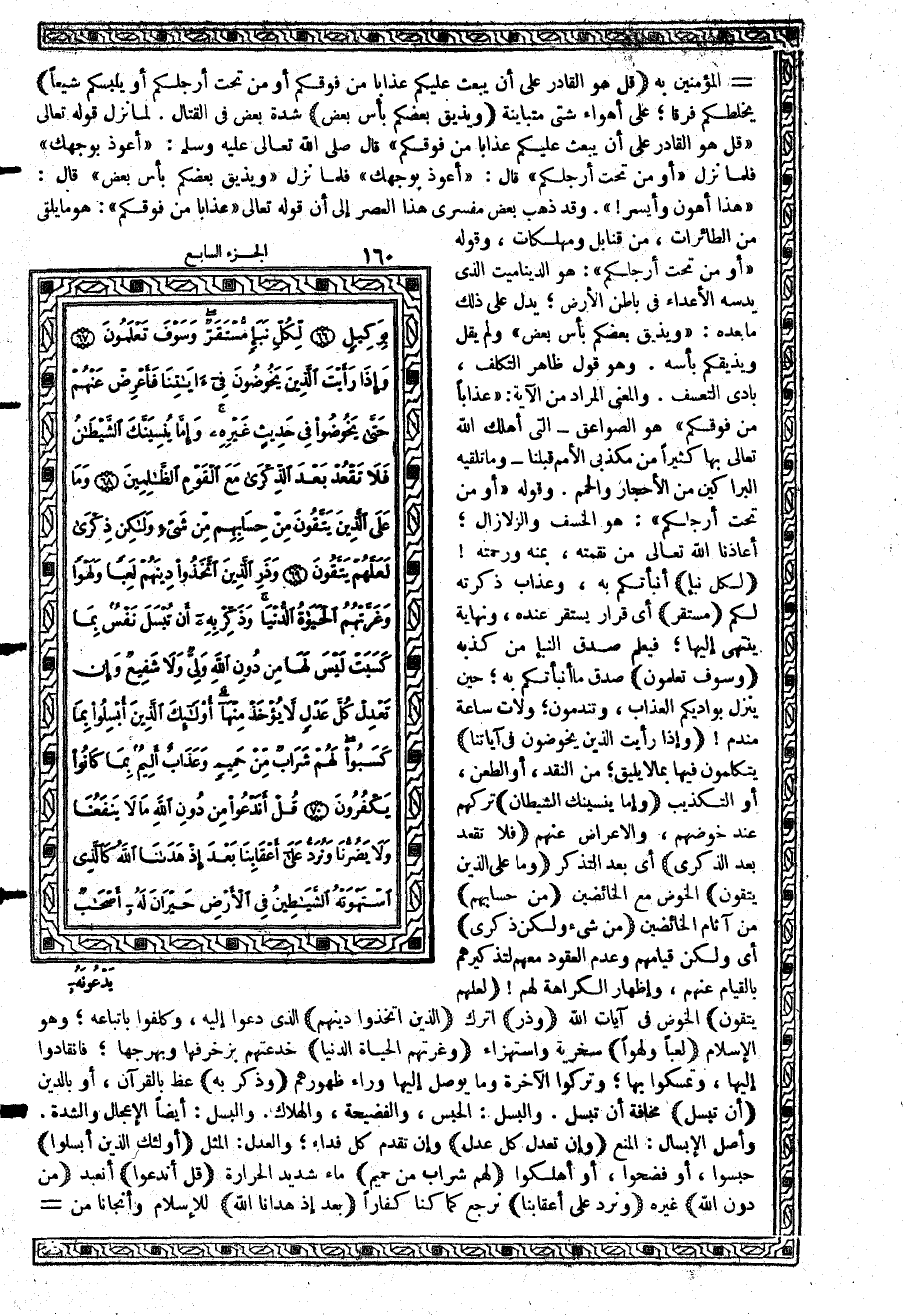 = المؤمنين به (قل هو القادر على أن يبعث عليكم عذابا من فوقكم أو من تحت أرجلكم أو يلبسكم شيعاً)
يخلطكم فرقا ؛ على أهواء شتى متباينة (ويذيق بعضكم بأس بعض) شدة بعض فى القتال . لما نزل قوله تعالى
«قل هو القادر على أن يبعث عليكم عذابا من فوقكم» قال صلى الله تعالى عليه وسلم : «أعوذ بوجهك»
فلما نزل «أو من تحت أرجلكم» قال : «أعوذ بوجهك» فلما نزل «ويذيق بعضكم بأس بعض» قال :
«هذا أهون وأيسر!». وقد ذهب بعض مفسرى هذا العصر إلى أن قوله تعالى «عذابا من فوقكم»: هو مايلقى
من الطائرات ، من قنابل ومهلكات ، وقوله
«أو من تحت أرجلكم»: هو الديناميت الذى
يدسه الأعداء فى باطن الأرض ؛ يدل على ذلك
مابعده : «ويذيق بعضكم بأس بعض» ولم يقل
ويذيقكم بأسه . وهو قول ظاهر التكلف ،
بادى التعسف . والمعنى المراد من الآية: «عذاباً
من فوقكم» هو الصواعق ــ التى أهلك الله
تعالى بها كثيراً من مكذبى الأمم قبلنا ــ وماتلقيه
البراكين من الأحجار والحمم . وقوله «أو من
تحت أرجلكم» : هو الخسف والزلازل ؛
أعاذنا الله تعالى من نقمته ، بمنه ورحمته !
(لكل نبإ) أنبأتكم به ، وعذاب ذكرته
لكم (مستقر) أى قرار يستقر عنده ، ونهاية
ينتهى إليها ؛ فيعلم صدق النبإ من كذبه
(وسوف تعلمون) صدق ماأنبأتكم به ؛ حين
ينزل بواديكم العذاب ، وتندمون؛ ولات ساعة
مندم ! (وإذا رأيت الذين يخوضون فى آياتنا)
يتكلمون فيها بمالايليق؛ من النقد ، أوالطعن ،
أو التكذيب (وإما ينسينك الشيطان) تركهم
عند خوضهم ، والاعراض عنهم (فلا تقعد
بعد الذكرى) أى بعد التذكر (وما على الذين
يتقون) الخوض مع الخائضين (من حسابهم)
من آثام الخائضين (من شىء ولكن ذكرى)
أى ولكن قيامهم وعدم القعود معهم لتذكيرهم
بالقيام عنهم ، وإظهار الكراهة لهم ! (لعلهم
يتقون) الخوض فى آيات الله (وذر) اترك (الذين اتخذوا دينهم) الذى دعوا إليه ، وكلفوا باتباعه ؛ وهو
الإسلام (لعباً ولهواً) سخرية واستهزاء (وغرتهم الحياة الدنيا) خدعتهم بزخرفها وبهرجها ؛ فانقادوا
إليها ، وتمسكوا بها ؛ وتركوا الآخرة وما يوصل إليها وراء ظهورهم (وذكر به) عظ بالقرآن ، أو بالدين
(أن تبسل) مخافة أن تبسل . والبسل : الحبس ، والفضيحة ، والهلاك. والبسل : أيضاً الإعجال والشدة .
وأصل الإبسال : المنع (وإن تعدل كل عدل) وإن تقدم كل فداء ؛ والعدل: المثل (أولئك الذين أبسلوا)
حبسوا ، أو فضحوا ، أو أهلكوا (لهم شراب من حميم) ماء شديد الحرارة (قل أندعوا) أنعبد (من
دون الله) غيره (ونرد على أعقابنا) نرجع كما كنا كفاراً (بعد إذ هدانا الله) للإسلام وأنجانا من =
١٦٠ الجزء السابع
بِوَكِيلٍ ﴿٦٦﴾ لِّكُلِّ نَبَإٍ مُّسْتَقَرٌّ وَسَوْفَ تَعْلَمُونَ ﴿٦٧﴾
وَإِذَا رَأَيْتَ ٱلَّذِينَ يَخُوضُونَ فِىٓ ءَايَٰتِنَا فَأَعْرِضْ عَنْهُمْ
حَتَّىٰ يَخُوضُوا۟ فِى حَدِيثٍ غَيْرِهِۦ وَإِمَّا يُنسِيَنَّكَ ٱلشَّيْطَٰنُ
فَلَا تَقْعُدْ بَعْدَ ٱلذِّكْرَىٰ مَعَ ٱلْقَوْمِ ٱلظَّٰلِمِينَ ﴿٦٨﴾ وَمَا
عَلَى ٱلَّذِينَ يَتَّقُونَ مِنْ حِسَابِهِم مِّن شَىْءٍ وَلَٰكِن ذِكْرَىٰ
لَعَلَّهُمْ يَتَّقُونَ ﴿٦٩﴾ وَذَرِ ٱلَّذِينَ ٱتَّخَذُوا۟ دِينَهُمْ لَعِبًا وَلَهْوًا
وَغَرَّتْهُمُ ٱلْحَيَوٰةُ ٱلدُّنْيَا وَذَكِّرْ بِهِۦٓ أَن تُبْسَلَ نَفْسٌۢ بِمَا
كَسَبَتْ لَيْسَ لَهَا مِن دُونِ ٱللَّهِ وَلِىٌّ وَلَا شَفِيعٌ وَإِن
تَعْدِلْ كُلَّ عَدْلٍ لَّا يُؤْخَذْ مِنْهَآ أُو۟لَٰٓئِكَ ٱلَّذِينَ أُبْسِلُوا۟ بِمَا
كَسَبُوا۟ لَهُمْ شَرَابٌ مِّنْ حَمِيمٍ وَعَذَابٌ أَلِيمٌۢ بِمَا كَانُوا۟
يَكْفُرُونَ ﴿٧٠﴾ قُلْ أَنَدْعُوا۟ مِن دُونِ ٱللَّهِ مَا لَا يَنفَعُنَا
وَلَا يَضُرُّنَا وَنُرَدُّ عَلَىٰٓ أَعْقَابِنَا بَعْدَ إِذْ هَدَىٰنَا ٱللَّهُ كَٱلَّذِى
ٱسْتَهْوَتْهُ ٱلشَّيَٰطِينُ فِى ٱلْأَرْضِ حَيْرَانَ لَهُۥٓ أَصْحَٰبٌ
يَدْعُونَهُۥٓ